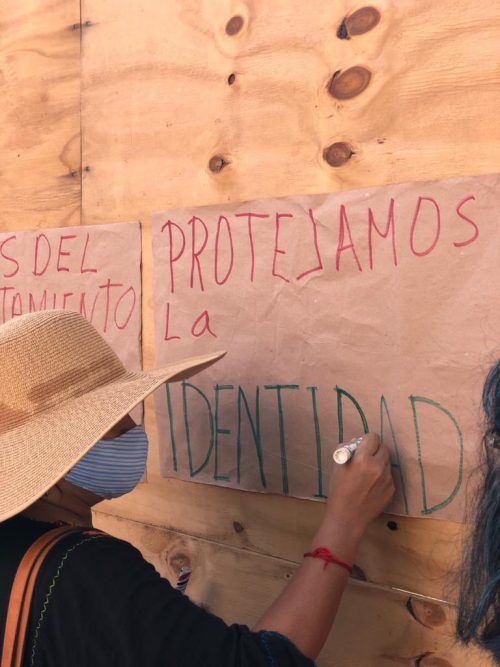 S DEL
TAMIENTO
PROTEJAMOS
La
IDENTIDAD